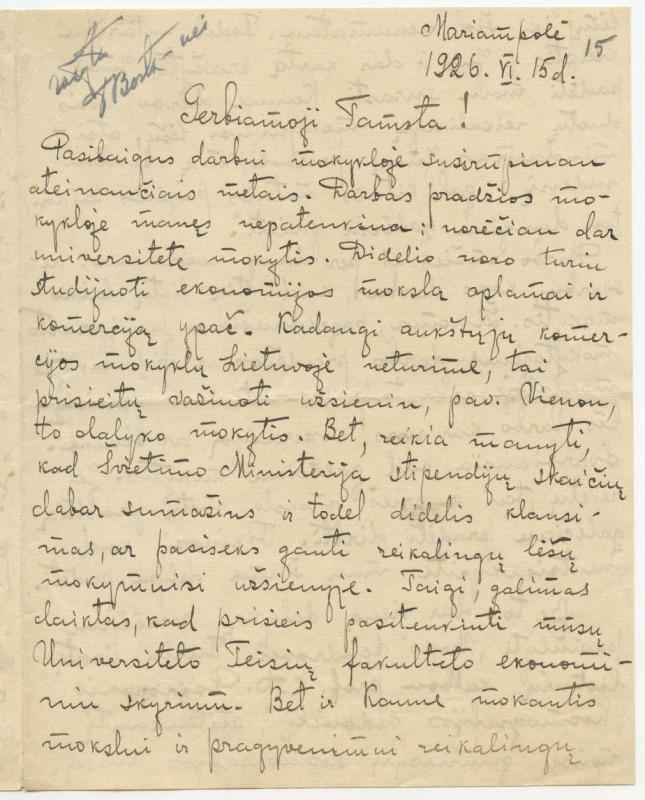 Mariampolė
15
1926. VI. 15d.
Gerbiamoji Tamsta!
Pasibaigus darbui mokykloje susirūpinau
ateinančiais metais. Darbas pradžios mo-
kykloje manęs nepatenkina: norėčiau dar
universitete mokytis. Didelio noro turiu
studijuoti ekonomijos mokslą aplamai ir
komerciją ypač. Kadangi aukštųjų komer-
cijos mokyklų Lietuvoje neturime, tai
prisieitų važiuoti užsienin, pav. Vienon,
to dalyko mokytis. Bet, reikia manyti,
kad Švietimo Ministerija stipendijų skaičių
dabar sumažins ir todėl didelis klausi-
mas, ar pasiseks gauti reikalingų lėšų
mokymuisi užsienyje. Taigi, galimas
daiktas, kad prisieis pasitenkinti mūsų
Universiteto Teisių fakulteto ekonomi-
niu skyrium. Bet ir Kaune mokantis
mokslui ir pragyvenimui reikalingų